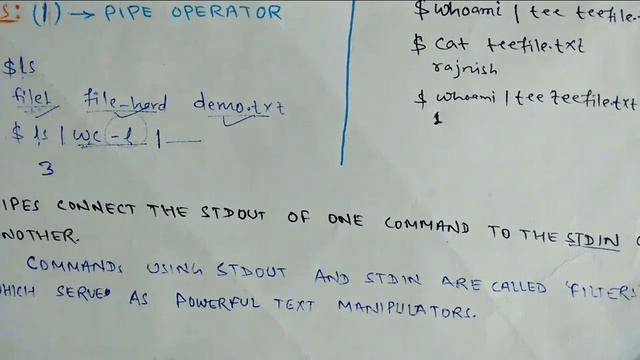 S: (|) → PIPE OPERATOR
$ls
file1 file_hard demo.txt
$ ls | wc -l |
3
$ whoami | tee teefile.
$ cat teefile.txt
rajnish
$ whoami | tee teefile.txt
1
IPES CONNECT THE STDOUT OF ONE COMMAND TO THE STDIN O
NOTHER.
COMMANDS USING STDOUT AND STDIN ARE CALLED 'FILTERS'
WHICH SERVED AS POWERFUL TEXT MANIPULATORS.